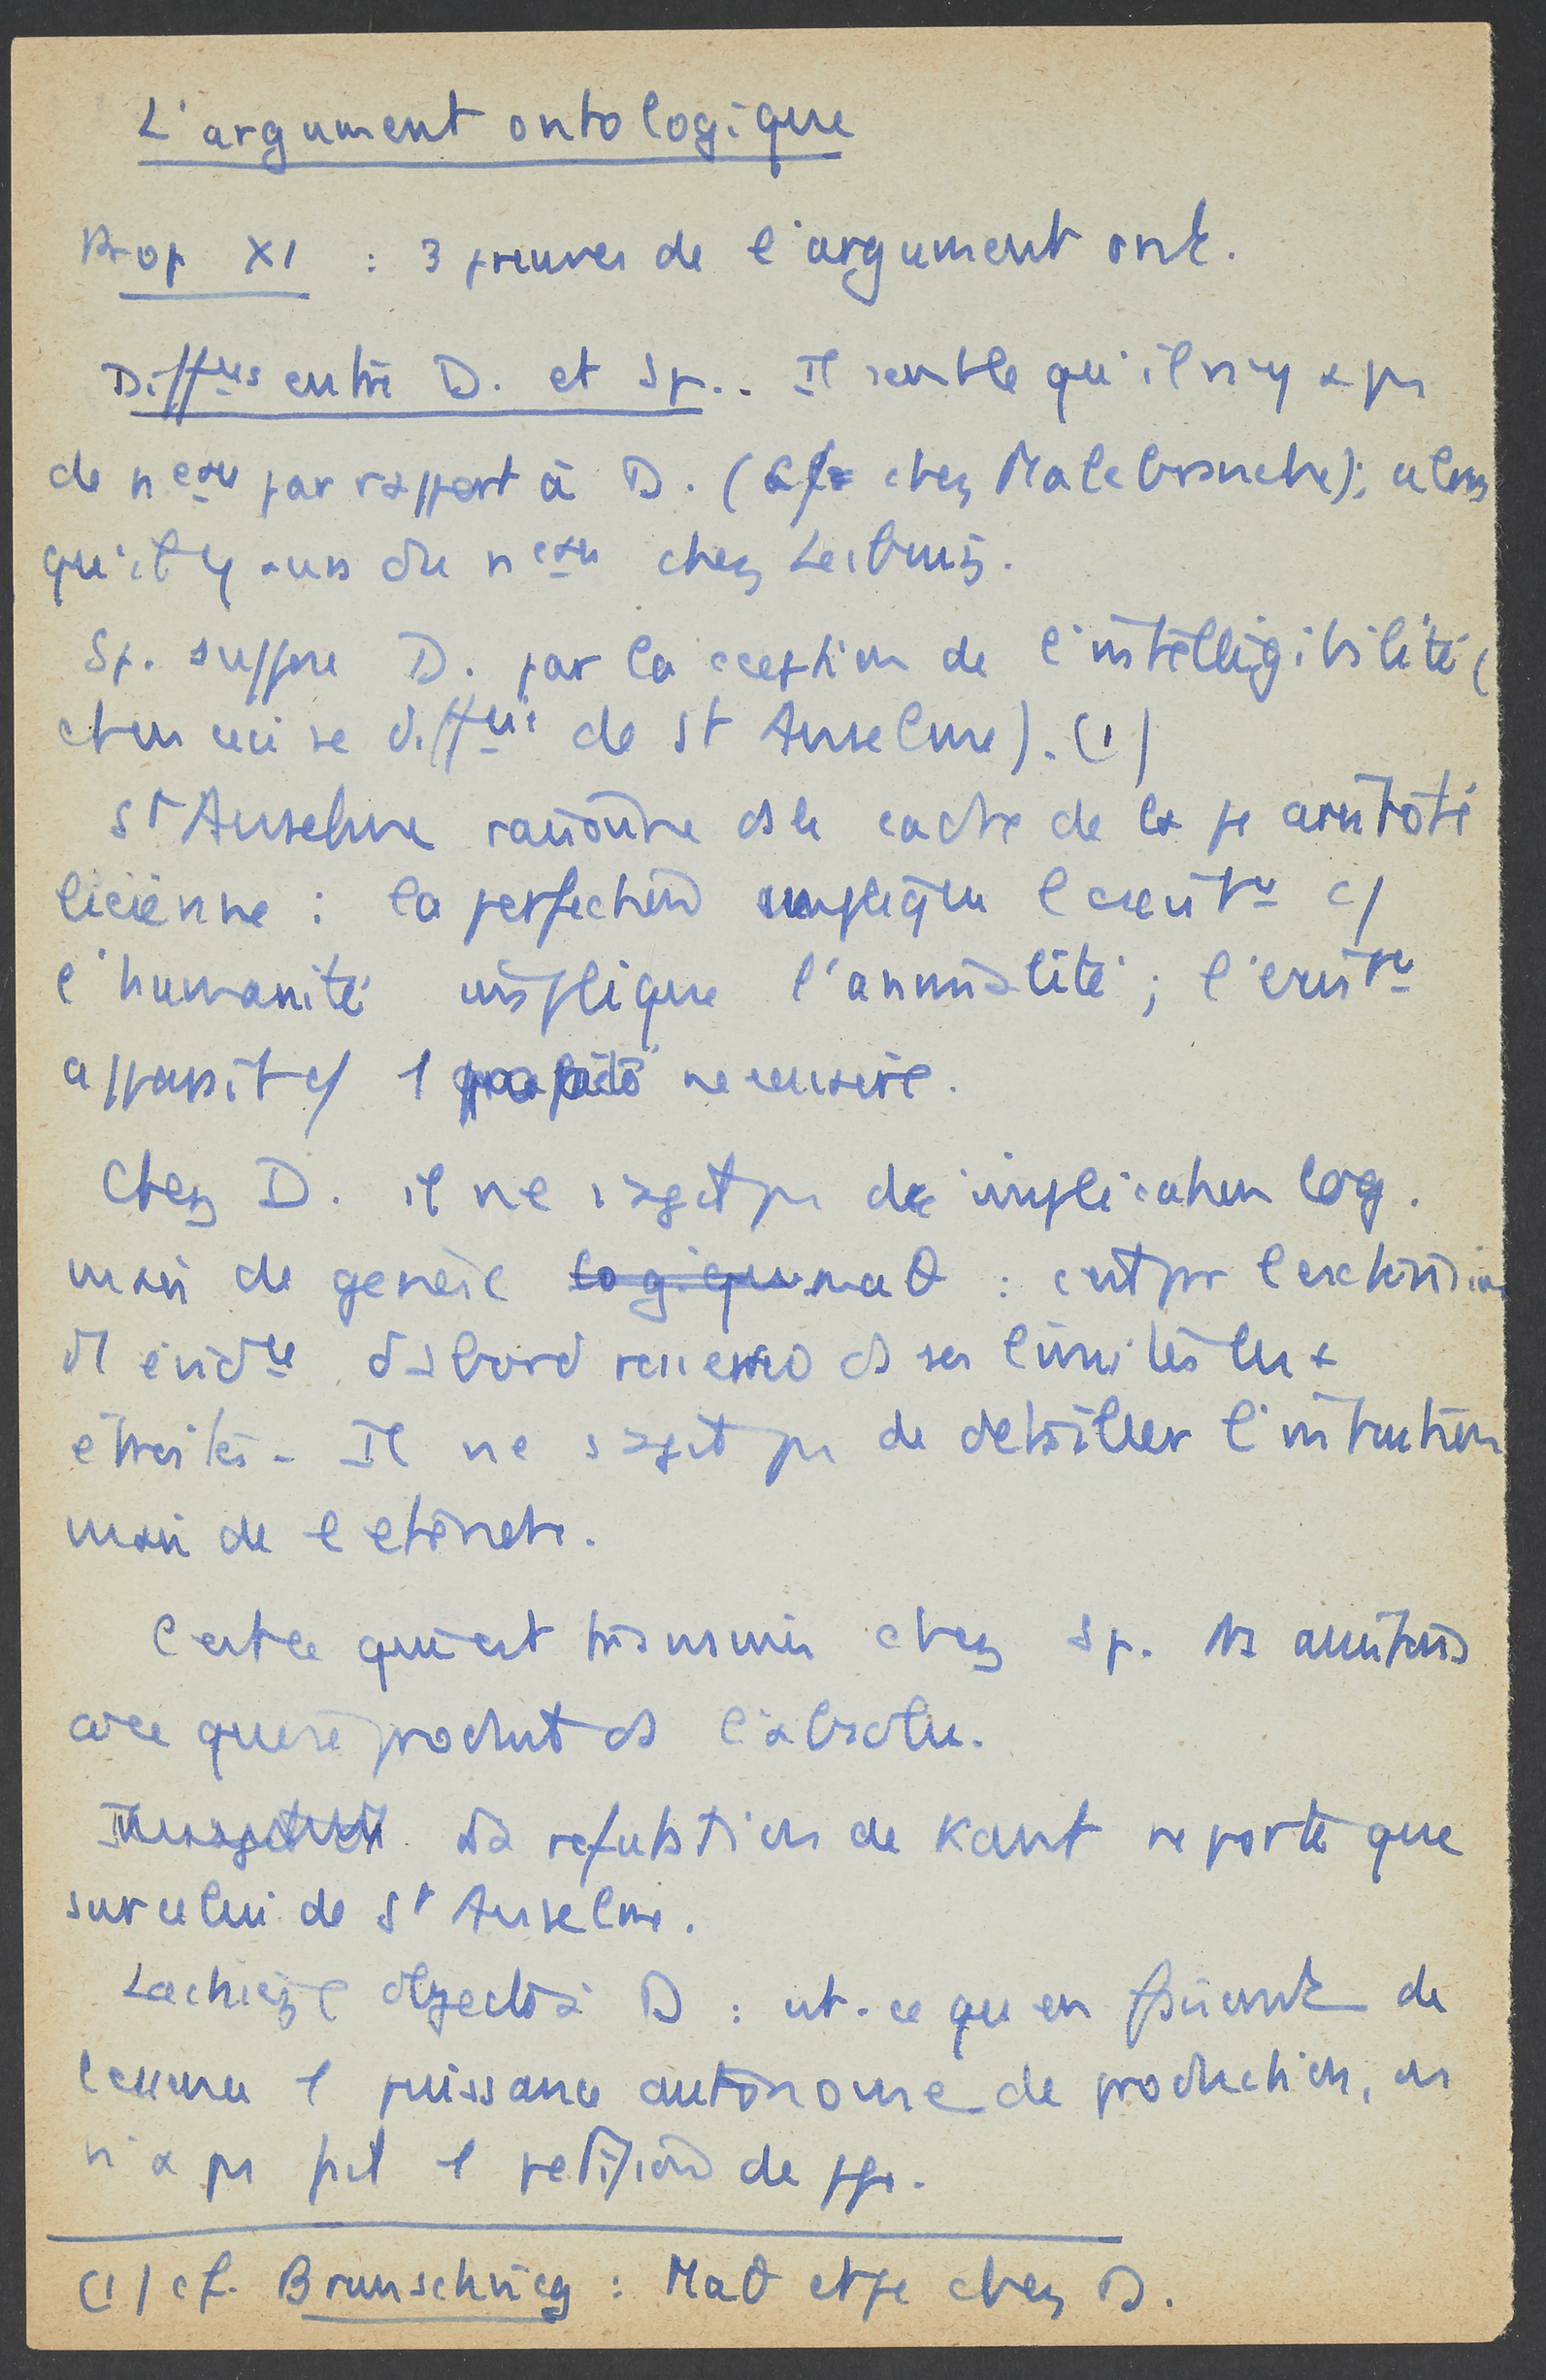 L'argument ontologique
Prop XI : 3 preuves de l'argument ont.
Diffces entre D. et Sp.. Il semble qu'il n'y a pas
de nveau par rapport à D. ( chez Malebranche); alors
qu'il y aura du nveau chez Leibniz.
Sp. suppose D. par la de l'intelligibilité (
chem ceci se diffcie de St Anselme). (1)
St Anselme raisonne ds le cadre de la φ aristoté
licienne : la perfection implique l'existce c/
l'humanité implique l'animalité ; l'existce
apparait c/ 1 propriété necessaire.
Chez D. il ne s'agit pas de implication log.
mais de genèse logique maθ : c'est par l'extension
d'1 évidce d'abord ds ses limites les +
étroites - Il ne s'agit pas de détailler l'intuition
mais de l'etendre.
C'est ce qui est transmis chez Sp.
ce que se produit ds l'absolu.
La refutation de Kant ne porte que
sur celui de St Anselme.
Lachièze objecte à D : est-ce qu'en faisant de
l'essence 1 puissance autonome de production, on
n'a pas fait 1 petition de ppe.
(1) cf. Brunschvicg : Maθ et φe chez D.